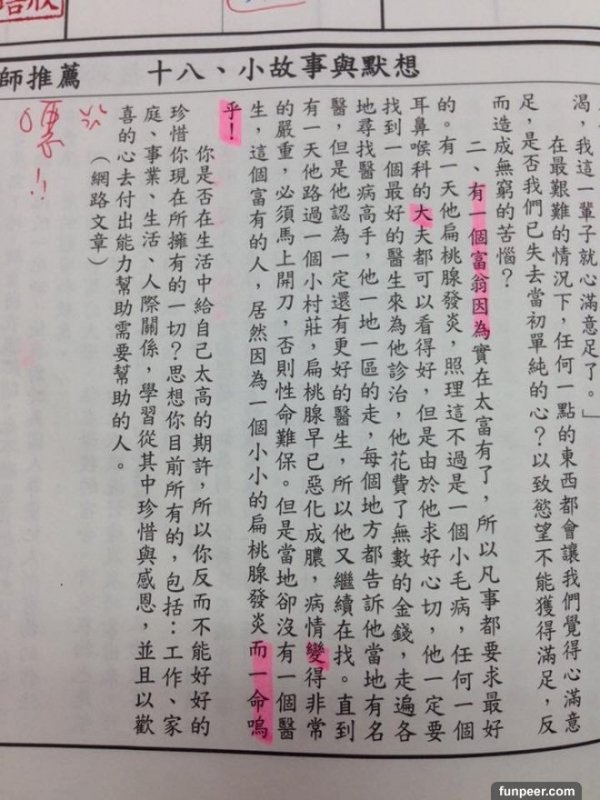 師推薦 十八、小故事與默想
渴，我這一輩子就心滿意足了。」
在最艱難的情況下，任何一點的東西都會讓我們覺得心滿意
足，是否我們已失去當初單純的心？以致慾望不能獲得滿足，反
而造成無窮的苦惱？
二、有一個富翁因為實在太富有了，所以凡事都要求最好
的。有一天他扁桃腺發炎，照理這不過是一個小毛病，任何一個
耳鼻喉科的大夫都可以看得好，但是由於他求好心切，他一定要
找到一個最好的醫生來為他診治，他花費了無數的金錢，走遍各
地尋找醫病高手，他一地一區的走，每個地方都告訴他當地有名
醫，但是他認為一定還有更好的醫生，所以他又繼續在找。直到
有一天他路過一個小村莊，扁桃腺早已惡化成膿，病情變得非常
的嚴重，必須馬上開刀，否則性命難保。但是當地卻沒有一個醫
生，這個富有的人，居然因為一個小小的扁桃腺發炎而一命嗚
乎！
你是否在生活中給自己太高的期許，所以你反而不能好好的
珍惜你現在所擁有的一切？思想你目前所有的，包括：工作、家
庭、事業、生活、人際關係，學習從其中珍惜與感恩，並且以歡
喜的心去付出能力幫助需要幫助的人。
（網路文章）
funpeer.com